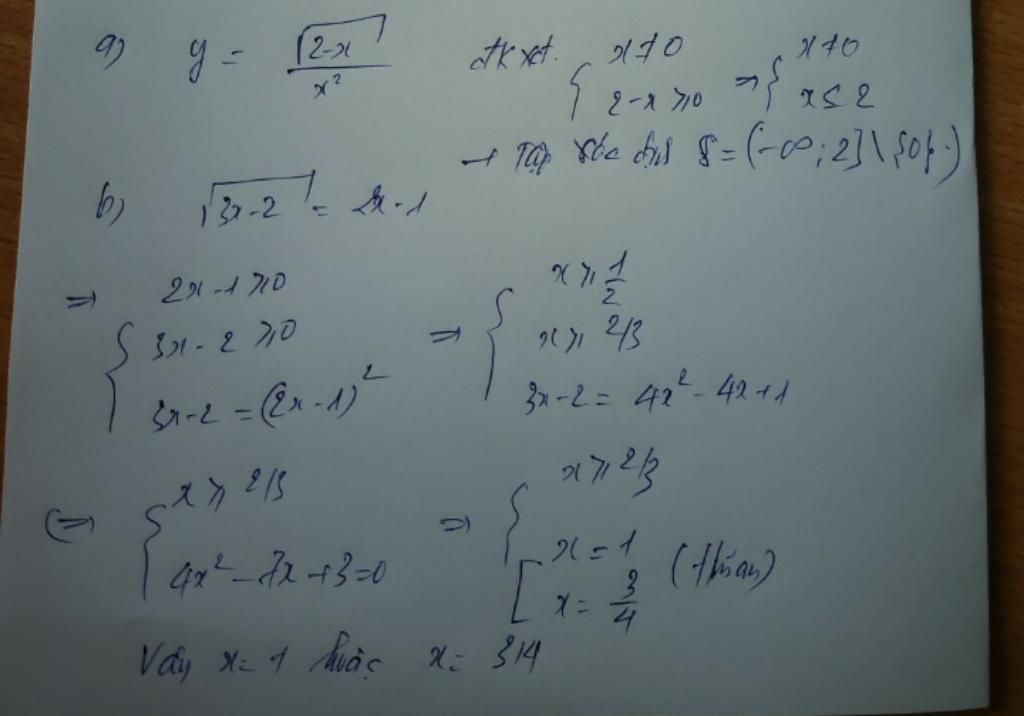 a) y = √(2-x) / x² đk xđ. { x ≠ 0 ; 2-x ≥ 0 ⇒ { x ≠ 0 ; x ≤ 2
→ Tập xác định S = (-∞; 2] \ {0}.)
b) √(3x-2) = 2x-1
⇒ { 2x-1 ≥ 0 ; 3x-2 ≥ 0 ; 3x-2 = (2x-1)² ⇒ { x ≥ 1/2 ; x ≥ 2/3 ; 3x-2 = 4x² - 4x + 1
(⇒ { x ≥ 2/3 ; 4x² - 7x + 3 = 0 ⇒ { x ≥ 2/3 ; [ x = 1 ; x = 3/4 (thỏa mãn)
Vậy x = 1 hoặc x = 3/4